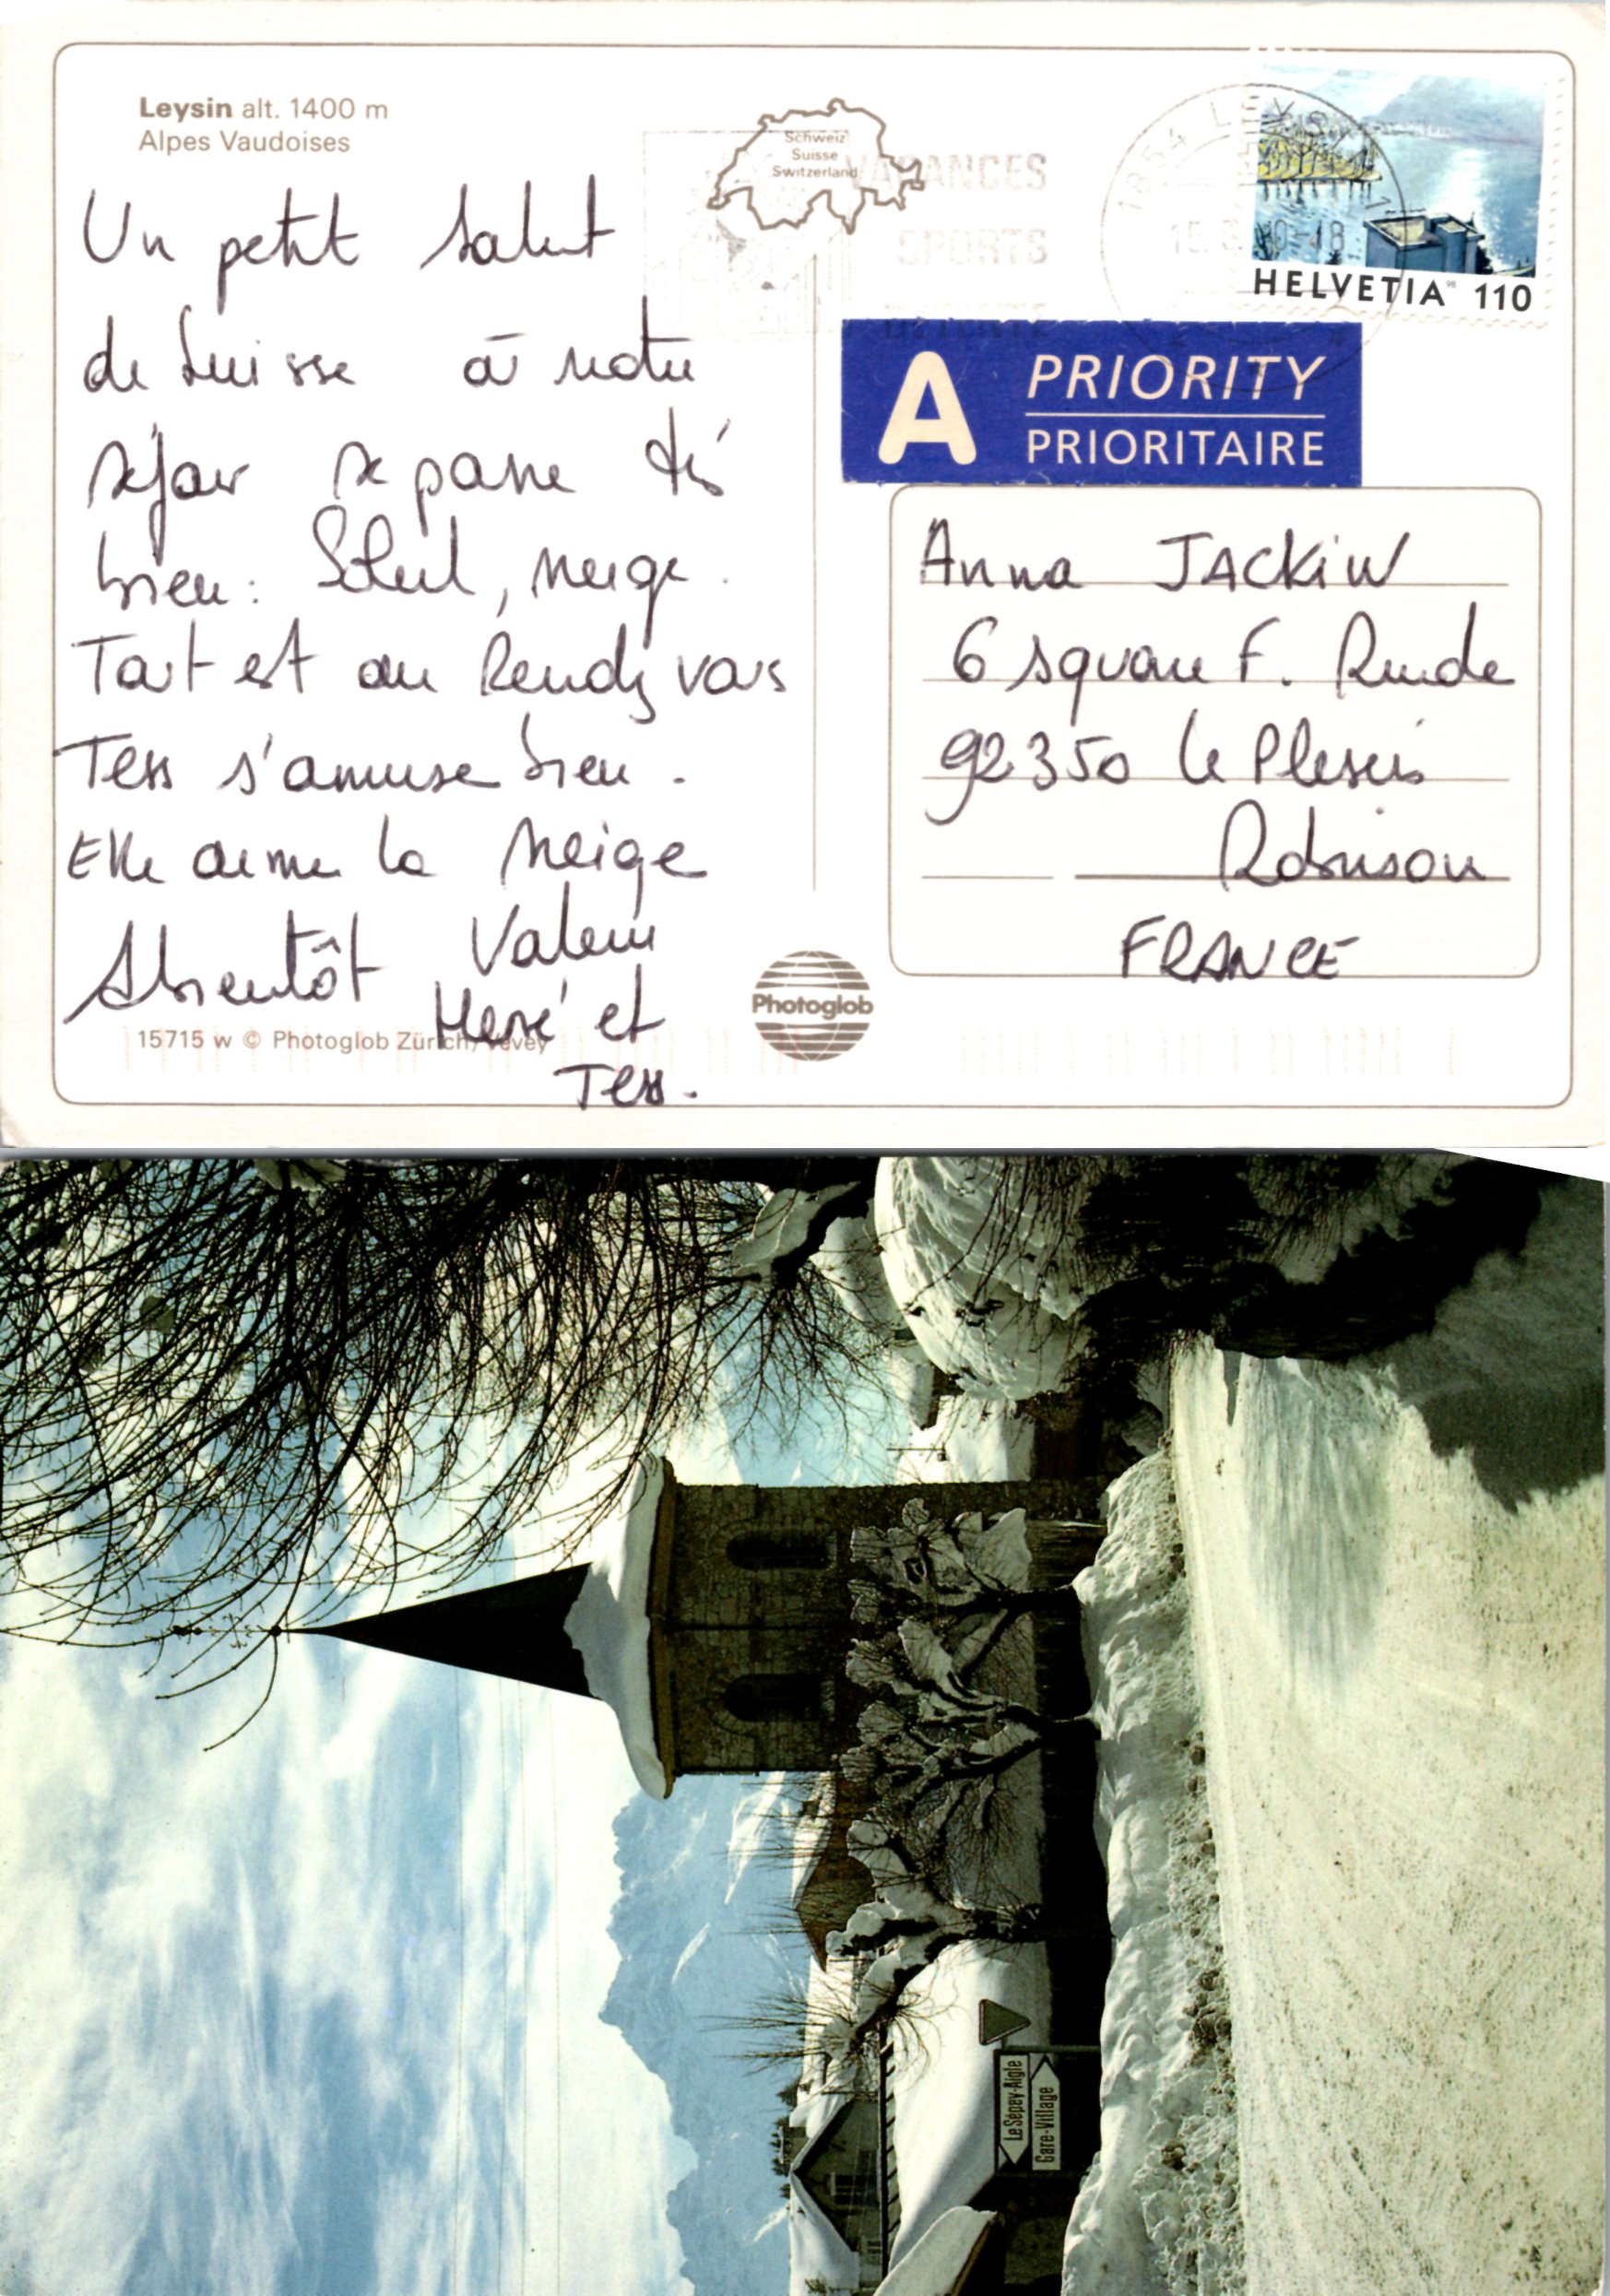 Leysin alt. 1400 m
Alpes Vaudoises
Schweiz
Suisse
Switzerland
VACANCES
SPORTS
DETENTE
1854 LEYSIN 1
HELVETIA 98 110
A PRIORITY
PRIORITAIRE
Un petit salut
de Suisse où notre
séjour se passe très
bien : Soleil, neige.
Tout est au Rendez vous
Tess s'amuse bien.
Elle aime la neige
A bientôt Valerie
Hervé et
Tess.
Anna JACKiW
6 square F. Rude
92350 Le Plessis
Robinson
FRANCE
Photoglob
15715 w © Photoglob Zürich/Vevey
Le Sépey-Aigle
Gare-Village